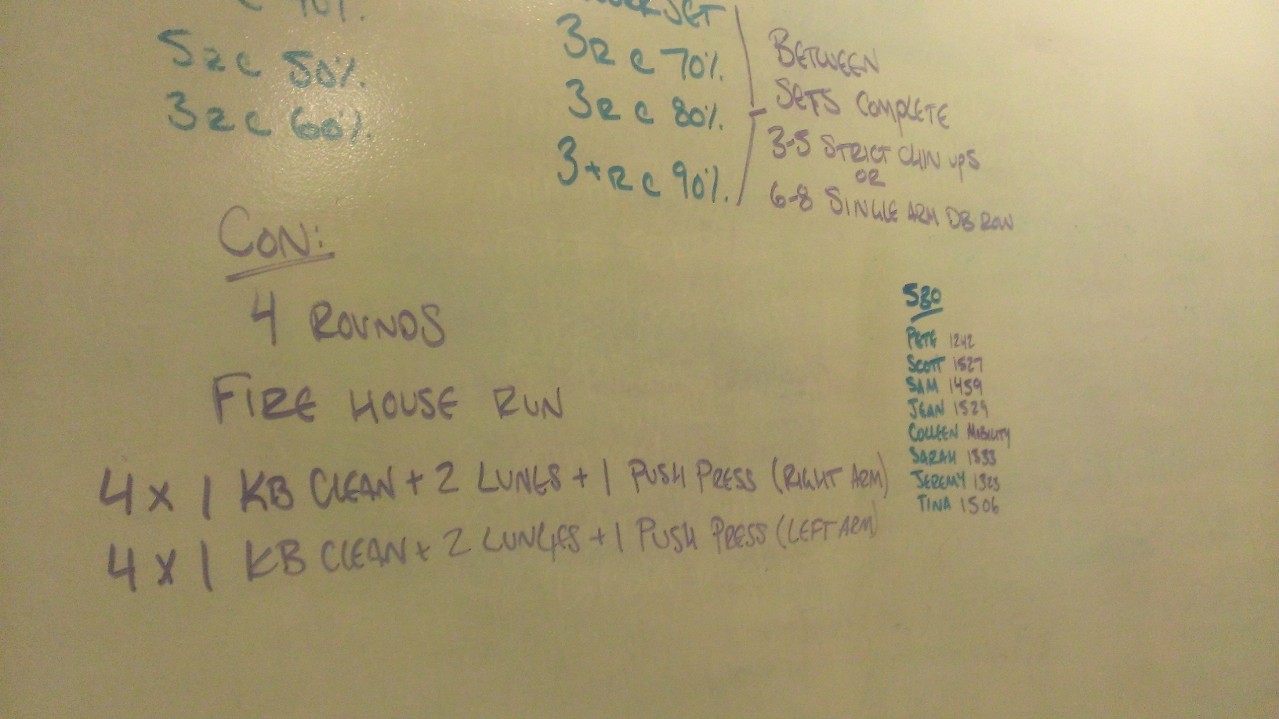 C 40%.
5R C 50%.
3R C 60%.
SET
3R C 70%.
3R C 80%.
3+R C 90%.
BETWEEN
SETS COMPLETE
3-5 STRICT CHIN UPS
OR
6-8 SINGLE ARM DB ROW
CON:
4 ROUNDS
FIRE HOUSE RUN
4 x 1 KB CLEAN + 2 LUNGES + 1 PUSH PRESS (RIGHT ARM)
4 x 1 KB CLEAN + 2 LUNGES + 1 PUSH PRESS (LEFT ARM)
530
PETE 1242
SCOTT 1527
SAM 1459
JEAN 1529
COLLEEN MOBILITY
SARAH 1333
JEREMY 1323
TINA 1506